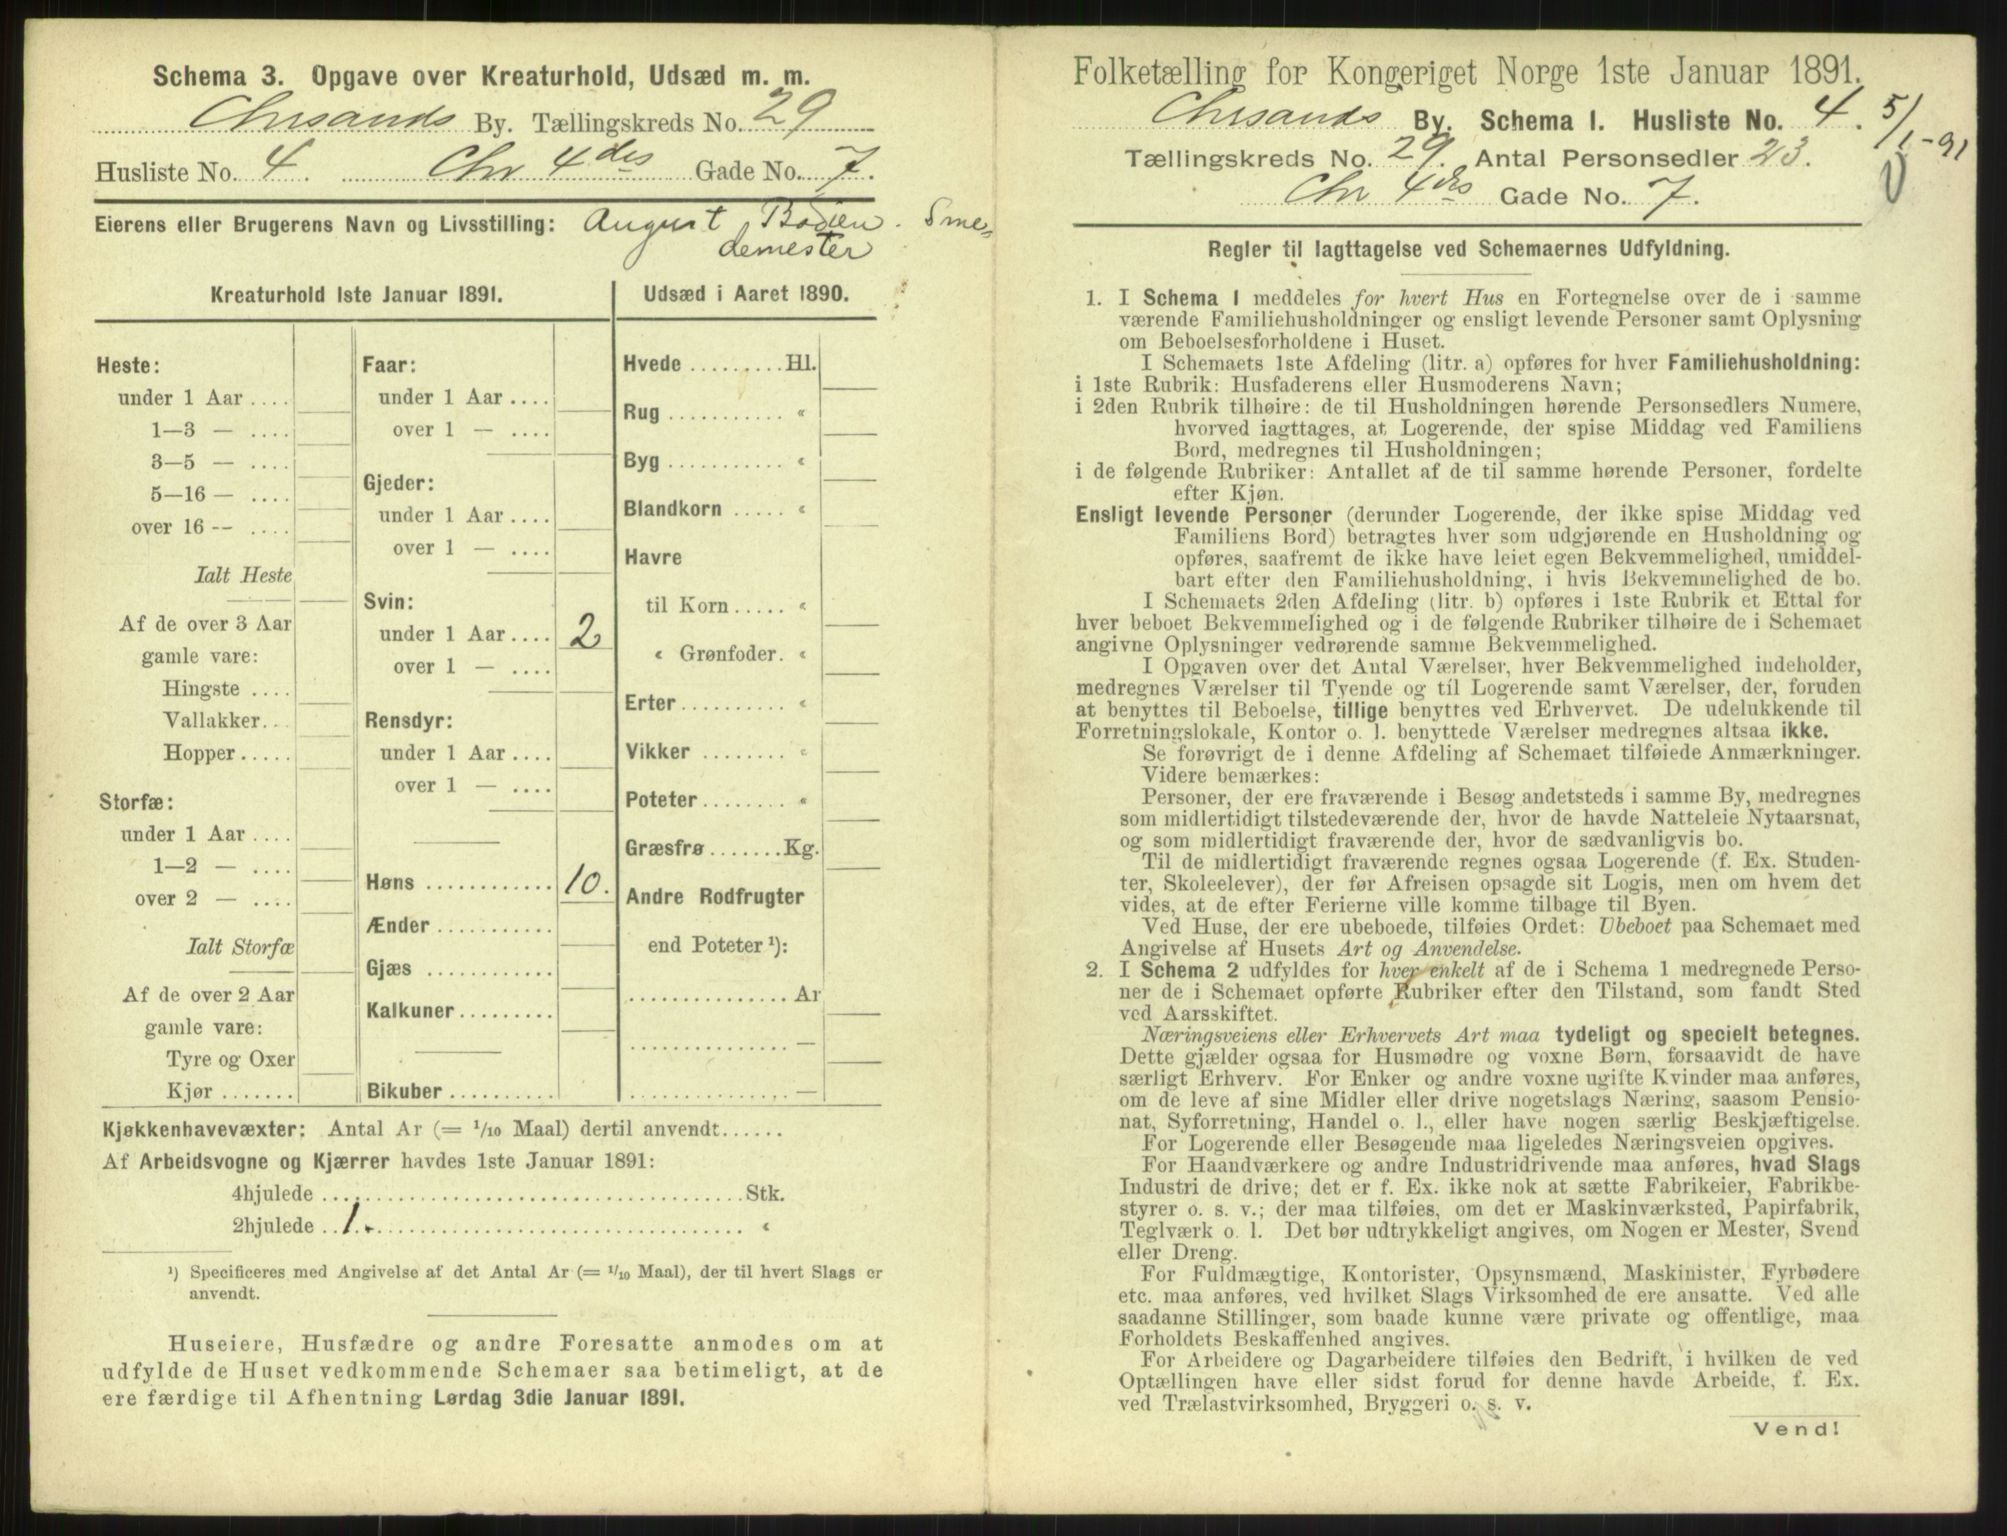 Schema 3. Opgave over Kreaturhold, Udsæd m. m.
Chrsands By. Tællingskreds No. 29
Husliste No. 4. Chr 4des Gade No. 7.
Eierens eller Brugerens Navn og Livsstilling: August Bodien. Sme-
demester
Kreaturhold 1ste Januar 1891.
Heste:
under 1 Aar ....
1—3 — ....
3—5 — ....
5—16 — ....
over 16 -- ....
Ialt Heste
Af de over 3 Aar
gamle vare:
Hingste ....
Vallakker...
Hopper.....
Storfæ:
under 1 Aar ....
1—2 — ....
over 2 — ....
Ialt Storfæ
Af de over 2 Aar
gamle vare:
Tyre og Oxer
Kjør .......
Faar:
under 1 Aar ....
over 1 — ....
Gjeder:
under 1 Aar ....
over 1 — ....
Svin:
under 1 Aar .... 2
over 1 — ....
Rensdyr:
under 1 Aar ....
over 1 — ....
Høns ............ 10.
Ænder ...........
Gjæs ............
Kalkuner.........
Bikuber ..........
Udsæd i Aaret 1890.
Hvede .........Hl.
Rug ........... «
Byg ........... «
Blandkorn ..... «
Havre
til Korn..... «
« Grønfoder. «
Erter.......... «
Vikker ........ «
Poteter........ «
Græsfrø.......Kg.
Andre Rodfrugter
end Poteter ¹):
............... Ar
............... —
............... —
Kjøkkenhavevæxter: Antal Ar (= ¹/₁₀ Maal) dertil anvendt......
Af Arbeidsvogne og Kjærrer havdes 1ste Januar 1891:
4hjulede ........................................Stk.
2hjulede .. 1. ........................................ «
¹) Specificeres med Angivelse af det Antal Ar (= ¹/₁₀ Maal), der til hvert Slags er
anvendt.
Huseiere, Husfædre og andre Foresatte anmodes om at
udfylde de Huset vedkommende Schemaer saa betimeligt, at de
ere færdige til Afhentning Lørdag 3die Januar 1891.
Folketælling for Kongeriget Norge 1ste Januar 1891.
Chrsands By. Schema I. Husliste No. 4. 5/1-91
Tællingskreds No. 29. Antal Personsedler 23.
Chr 4des Gade No. 7.
Regler til Iagttagelse ved Schemaernes Udfyldning.
1. I Schema I meddeles for hvert Hus en Fortegnelse over de i samme
værende Familiehusholdninger og ensligt levende Personer samt Oplysning
om Beboelsesforholdene i Huset.
I Schemaets 1ste Afdeling (litr. a) opføres for hver Familiehusholdning:
i 1ste Rubrik: Husfaderens eller Husmoderens Navn;
i 2den Rubrik tilhøire: de til Husholdningen hørende Personsedlers Numere,
hvorved iagttages, at Logerende, der spise Middag ved Familiens
Bord, medregnes til Husholdningen;
i de følgende Rubriker: Antallet af de til samme hørende Personer, fordelte
efter Kjøn.
Ensligt levende Personer (derunder Logerende, der ikke spise Middag ved
Familiens Bord) betragtes hver som udgjørende en Husholdning og
opføres, saafremt de ikke have leiet egen Bekvemmelighed, umiddel-
bart efter den Familiehusholdning, i hvis Bekvemmelighed de bo.
I Schemaets 2den Afdeling (litr. b) opføres i 1ste Rubrik et Ettal for
hver beboet Bekvemmelighed og i de følgende Rubriker tilhøire de i Schemaet
angivne Oplysninger vedrørende samme Bekvemmelighed.
I Opgaven over det Antal Værelser, hver Bekvemmelighed indeholder,
medregnes Værelser til Tyende og til Logerende samt Værelser, der, foruden
at benyttes til Beboelse, tillige benyttes ved Erhvervet. De udelukkende til
Forretningslokale, Kontor o. l. benyttede Værelser medregnes altsaa ikke.
Se forøvrigt de i denne Afdeling af Schemaet tilføiede Anmærkninger.
Videre bemærkes:
Personer, der ere fraværende i Besøg andetsteds i samme By, medregnes
som midlertidigt tilstedeværende der, hvor de havde Natteleie Nytaarsnat,
og som midlertidigt fraværende der, hvor de sædvanligvis bo.
Til de midlertidigt fraværende regnes ogsaa Logerende (f. Ex. Studen-
ter, Skoleelever), der før Afreisen opsagde sit Logis, men om hvem det
vides, at de efter Ferierne ville komme tilbage til Byen.
Ved Huse, der ere ubeboede, tilføies Ordet: Ubeboet paa Schemaet med
Angivelse af Husets Art og Anvendelse.
2. I Schema 2 udfyldes for hver enkelt af de i Schema 1 medregnede Perso-
ner de i Schemaet opførte Rubriker efter den Tilstand, som fandt Sted
ved Aarsskiftet.
Næringsveiens eller Erhvervets Art maa tydeligt og specielt betegnes.
Dette gjælder ogsaa for Husmødre og voxne Børn, forsaavidt de have
særligt Erhverv. For Enker og andre voxne ugifte Kvinder maa anføres,
om de leve af sine Midler eller drive nogetslags Næring, saasom Pensio-
nat, Syforretning, Handel o. l., eller have nogen særlig Beskjæftigelse.
For Logerende eller Besøgende maa ligeledes Næringsveien opgives.
For Haandværkere og andre Industridrivende maa anføres, hvad Slags
Industri de drive; det er f. Ex. ikke nok at sætte Fabrikeier, Fabrikbe-
styrer o. s. v.; der maa tilføies, om det er Maskinværksted, Papirfabrik,
Teglværk o. l. Det bør udtrykkeligt angives, om Nogen er Mester, Svend
eller Dreng.
For Fuldmægtige, Kontorister, Opsynsmænd, Maskinister, Fyrbødere
etc. maa anføres, ved hvilket Slags Virksomhed de ere ansatte. Ved alle
saadanne Stillinger, som baade kunne være private og offentlige, maa
Forholdets Beskaffenhed angives.
For Arbeidere og Dagarbeidere tilføies den Bedrift, i hvilken de ved
Optællingen have eller sidst forud for denne havde Arbeide, f. Ex.
ved Trælastvirksomhed, Bryggeri o. s. v.
Vend!